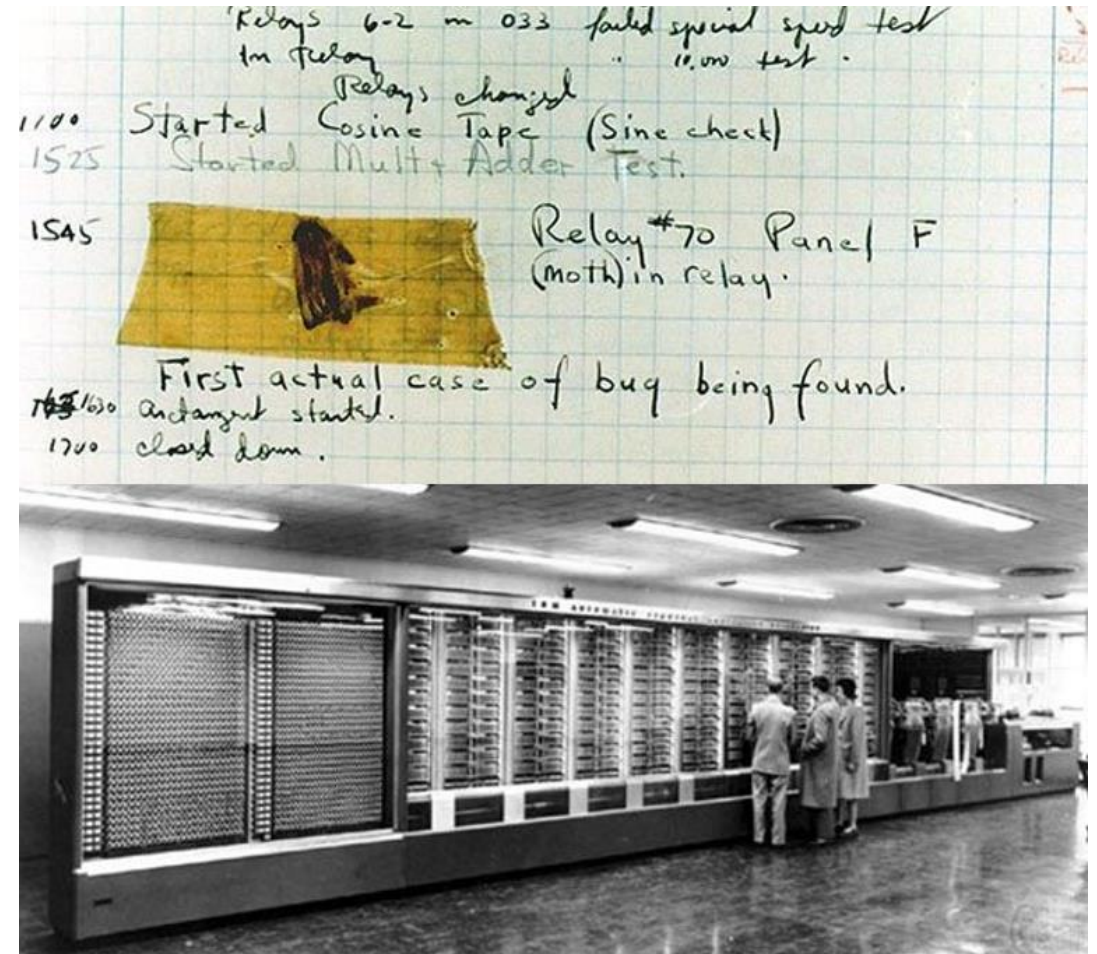 Relays 6-2 in 033 failed special speed test
In Relay " 10,000 test .
Relays changed
1100 Started Cosine Tape (Sine check)
1525 Started Mult+ Adder Test.
1545 Relay #70 Panel F
(moth) in relay.
First actual case of bug being found.
1630 antangent started.
1700 closed down.
IBM AUTOMATIC SEQUENCE CONTROLLED CALCULATOR